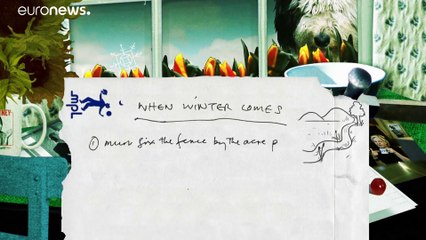 euronews.
mpl
WHEN WINTER COMES
① must fix the fence by the acre p
NEY: